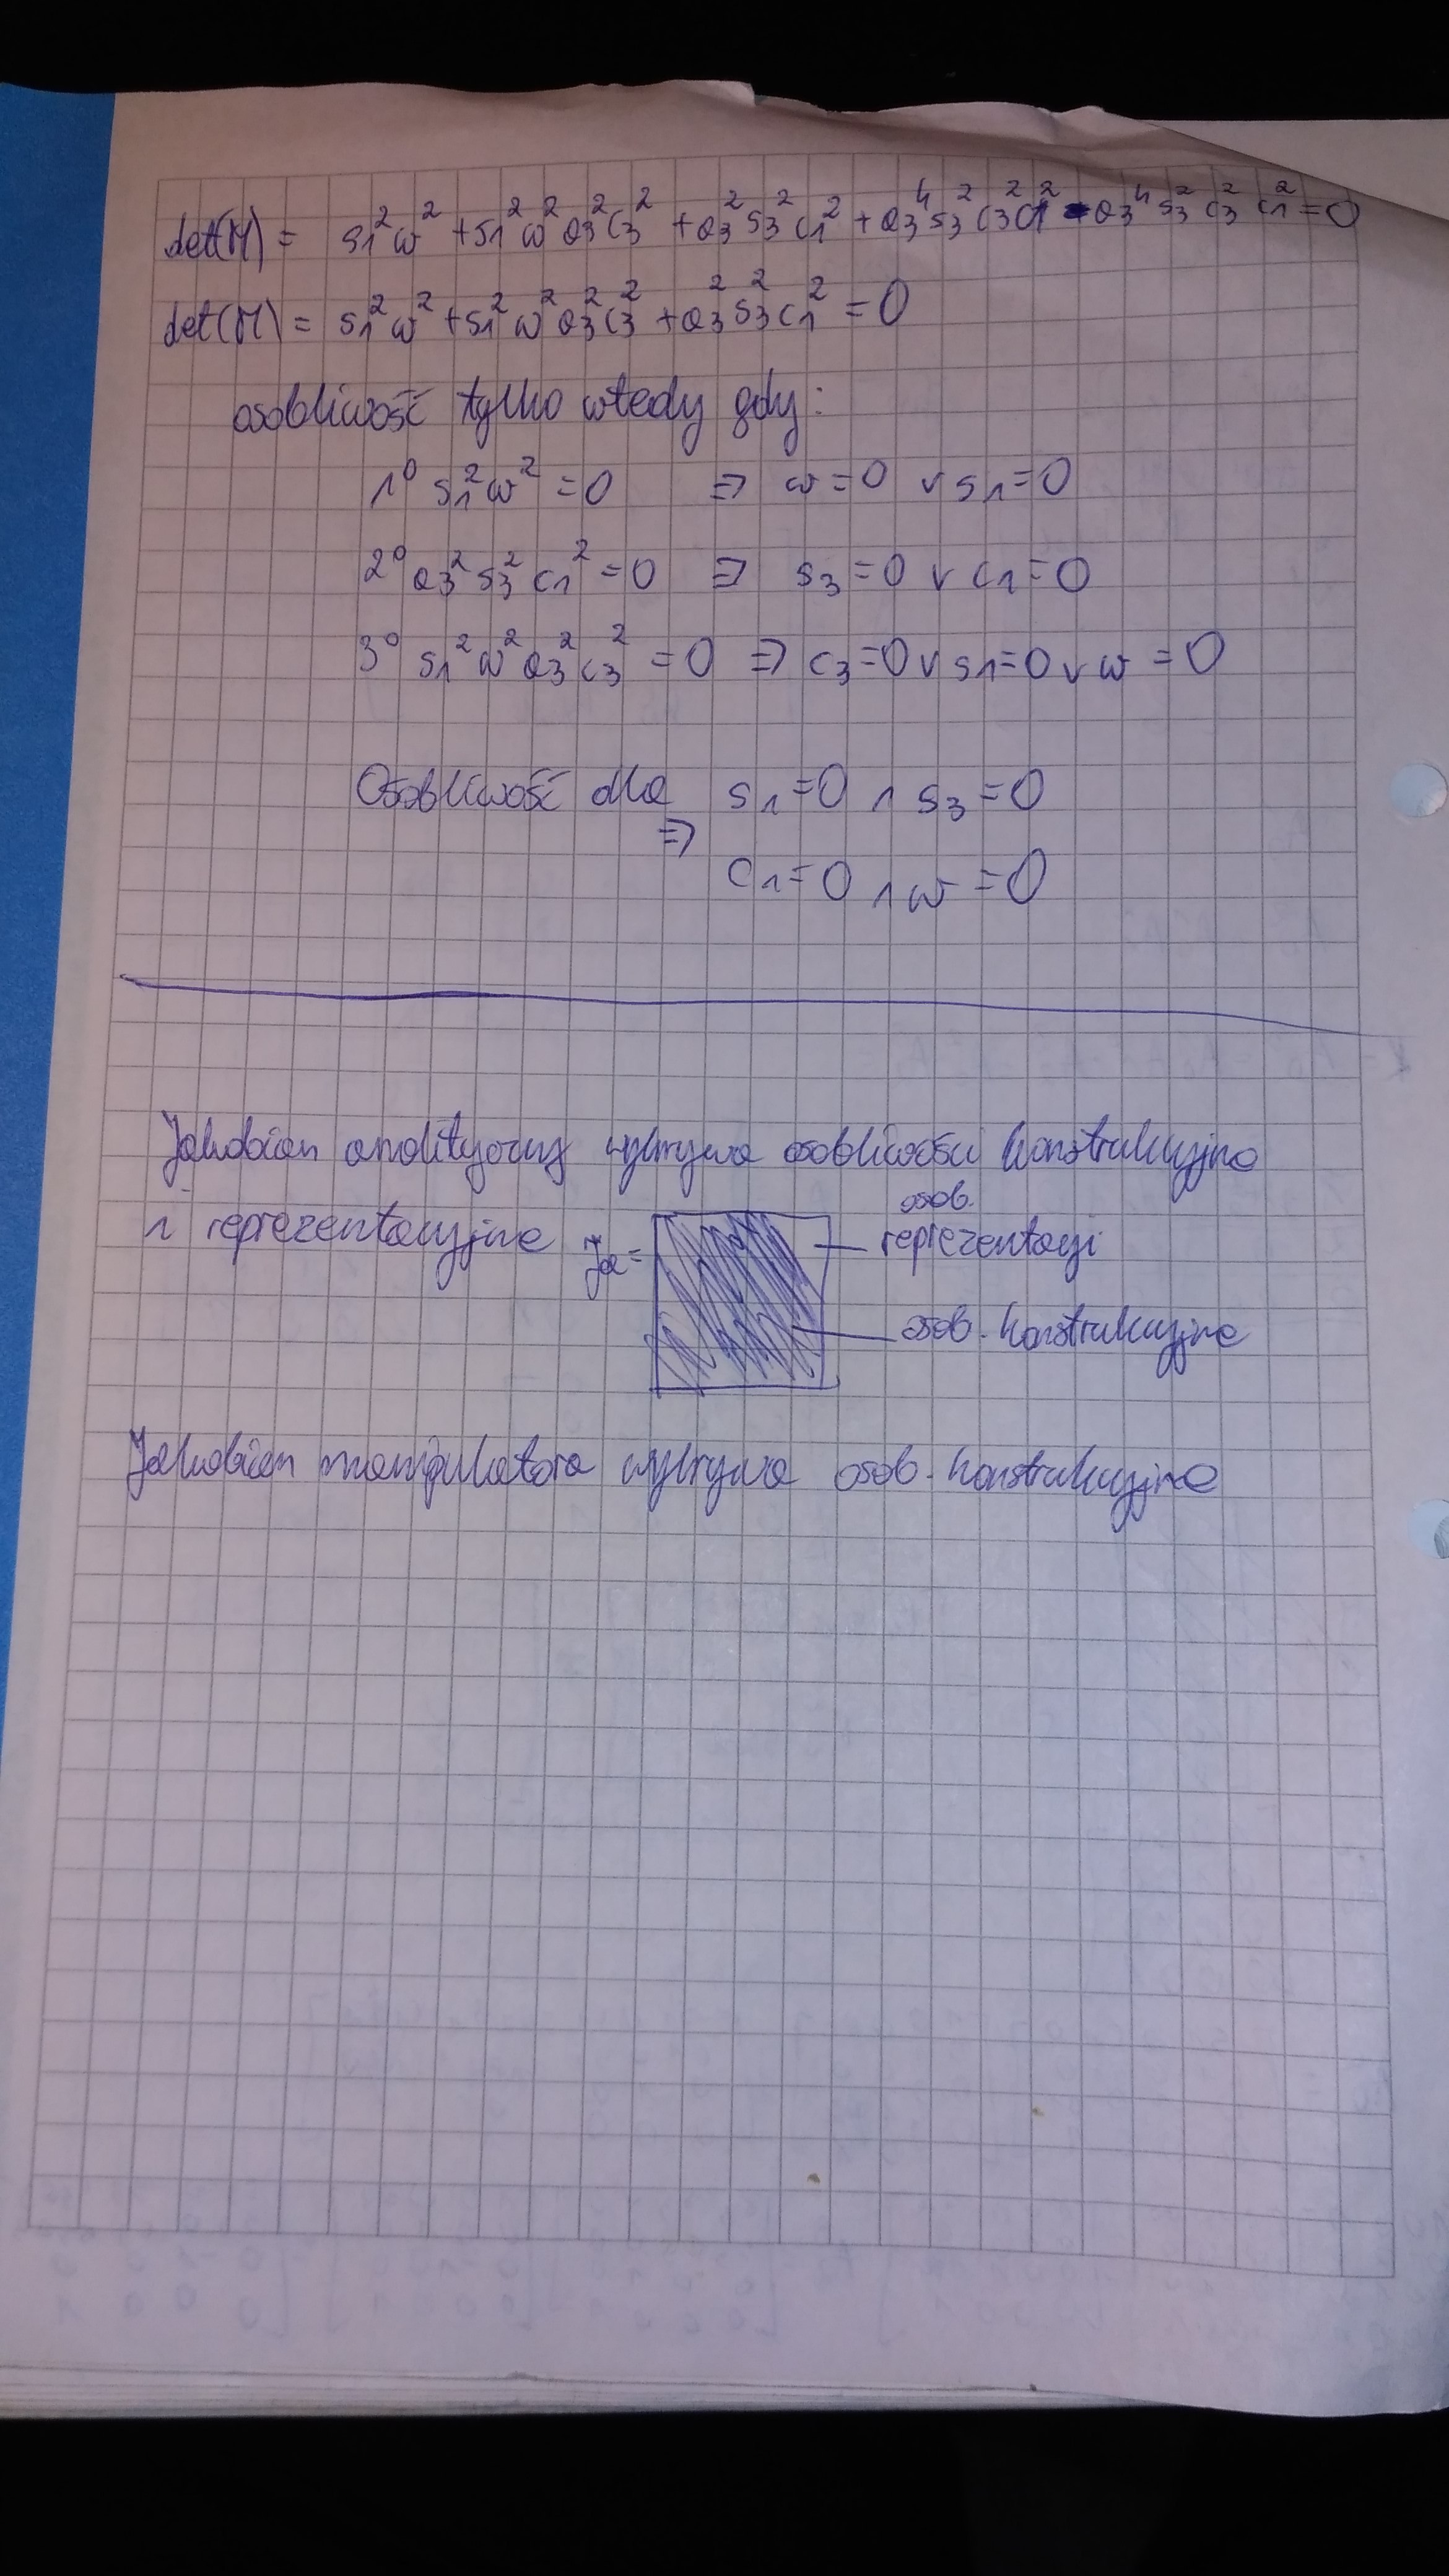 det(M) = s1²w² + s1²w²a3²c3² + a3²s3²c1² + a3⁴s3²c3²c1² - a3⁴s3²c3²c1² = 0
det(M) = s1²w² + s1²w²a3²c3² + a3²s3²c1² = 0
osobliwość tylko wtedy gdy:
1° s1²w² = 0 ⇒ w = 0 ∨ s1 = 0
2° a3²s3²c1² = 0 ⇒ s3 = 0 ∨ c1 = 0
3° s1²w²a3²c3² = 0 ⇒ c3 = 0 ∨ s1 = 0 ∨ w = 0
Osobliwość dla s1 = 0 ∧ s3 = 0
⇒
c1 = 0 ∧ w = 0
Jakobian analityczny wykrywa osobliwości konstrukcyjne
i reprezentacyjne Ja = osob. reprezentacji
osob. konstrukcyjne
Jakobian manipulatora wykrywa osob. konstrukcyjne